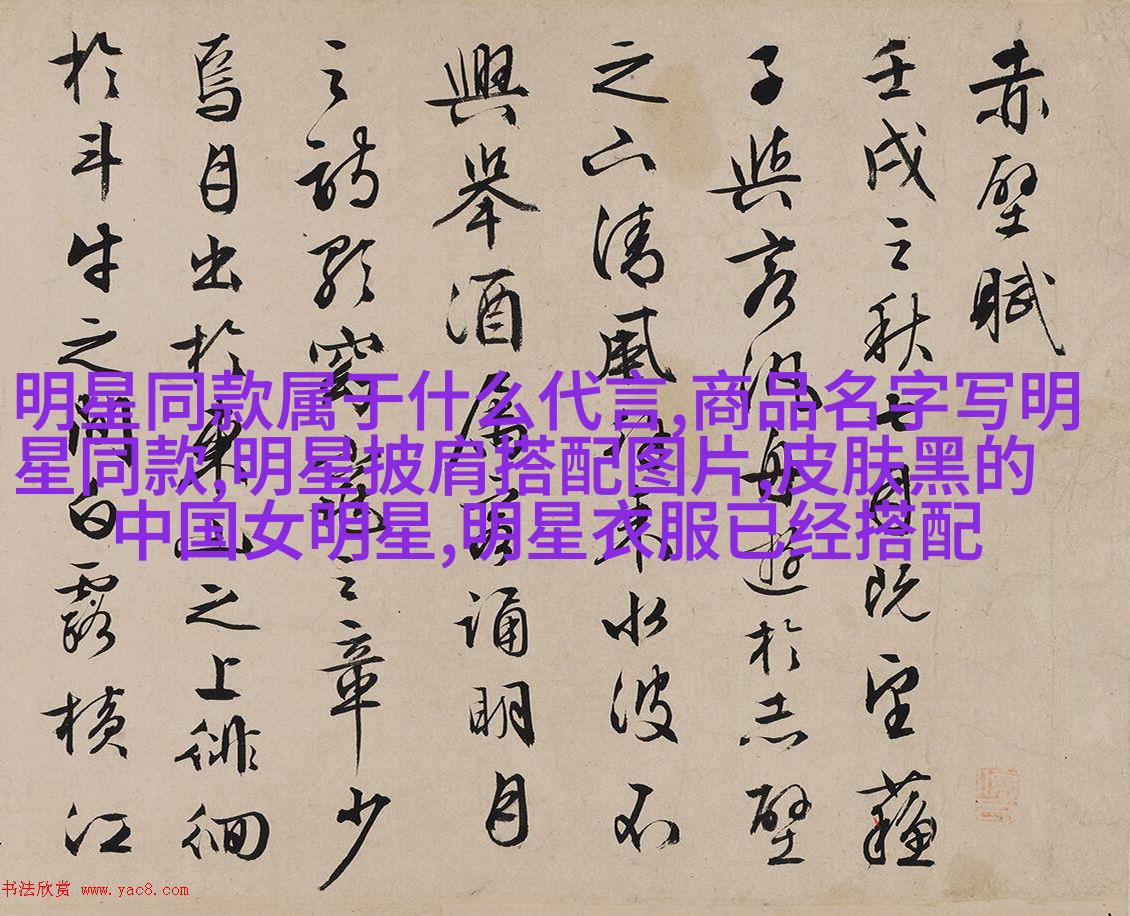 赤壁賦
壬戌之秋七月既望蘇
子與客汎舟遊於赤壁
之下清風徐來水波不
興舉酒屬客誦明月
之詩歌窈窕之章少
焉月出於東山之上徘徊
於斗牛之間白露橫江
明星同款属于什么代言,商品名字写明
星同款,明星披肩搭配图片,皮肤黑的
中国女明星,明星衣服已经搭配
书法欣赏 www.yac8.com